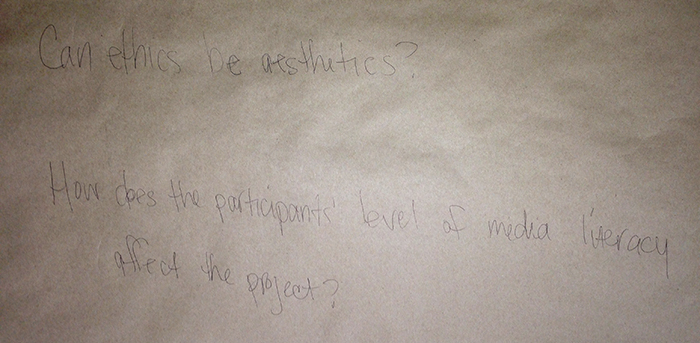 Can ethics be aesthetics?
How does the participants' level of media literacy
affect the project?